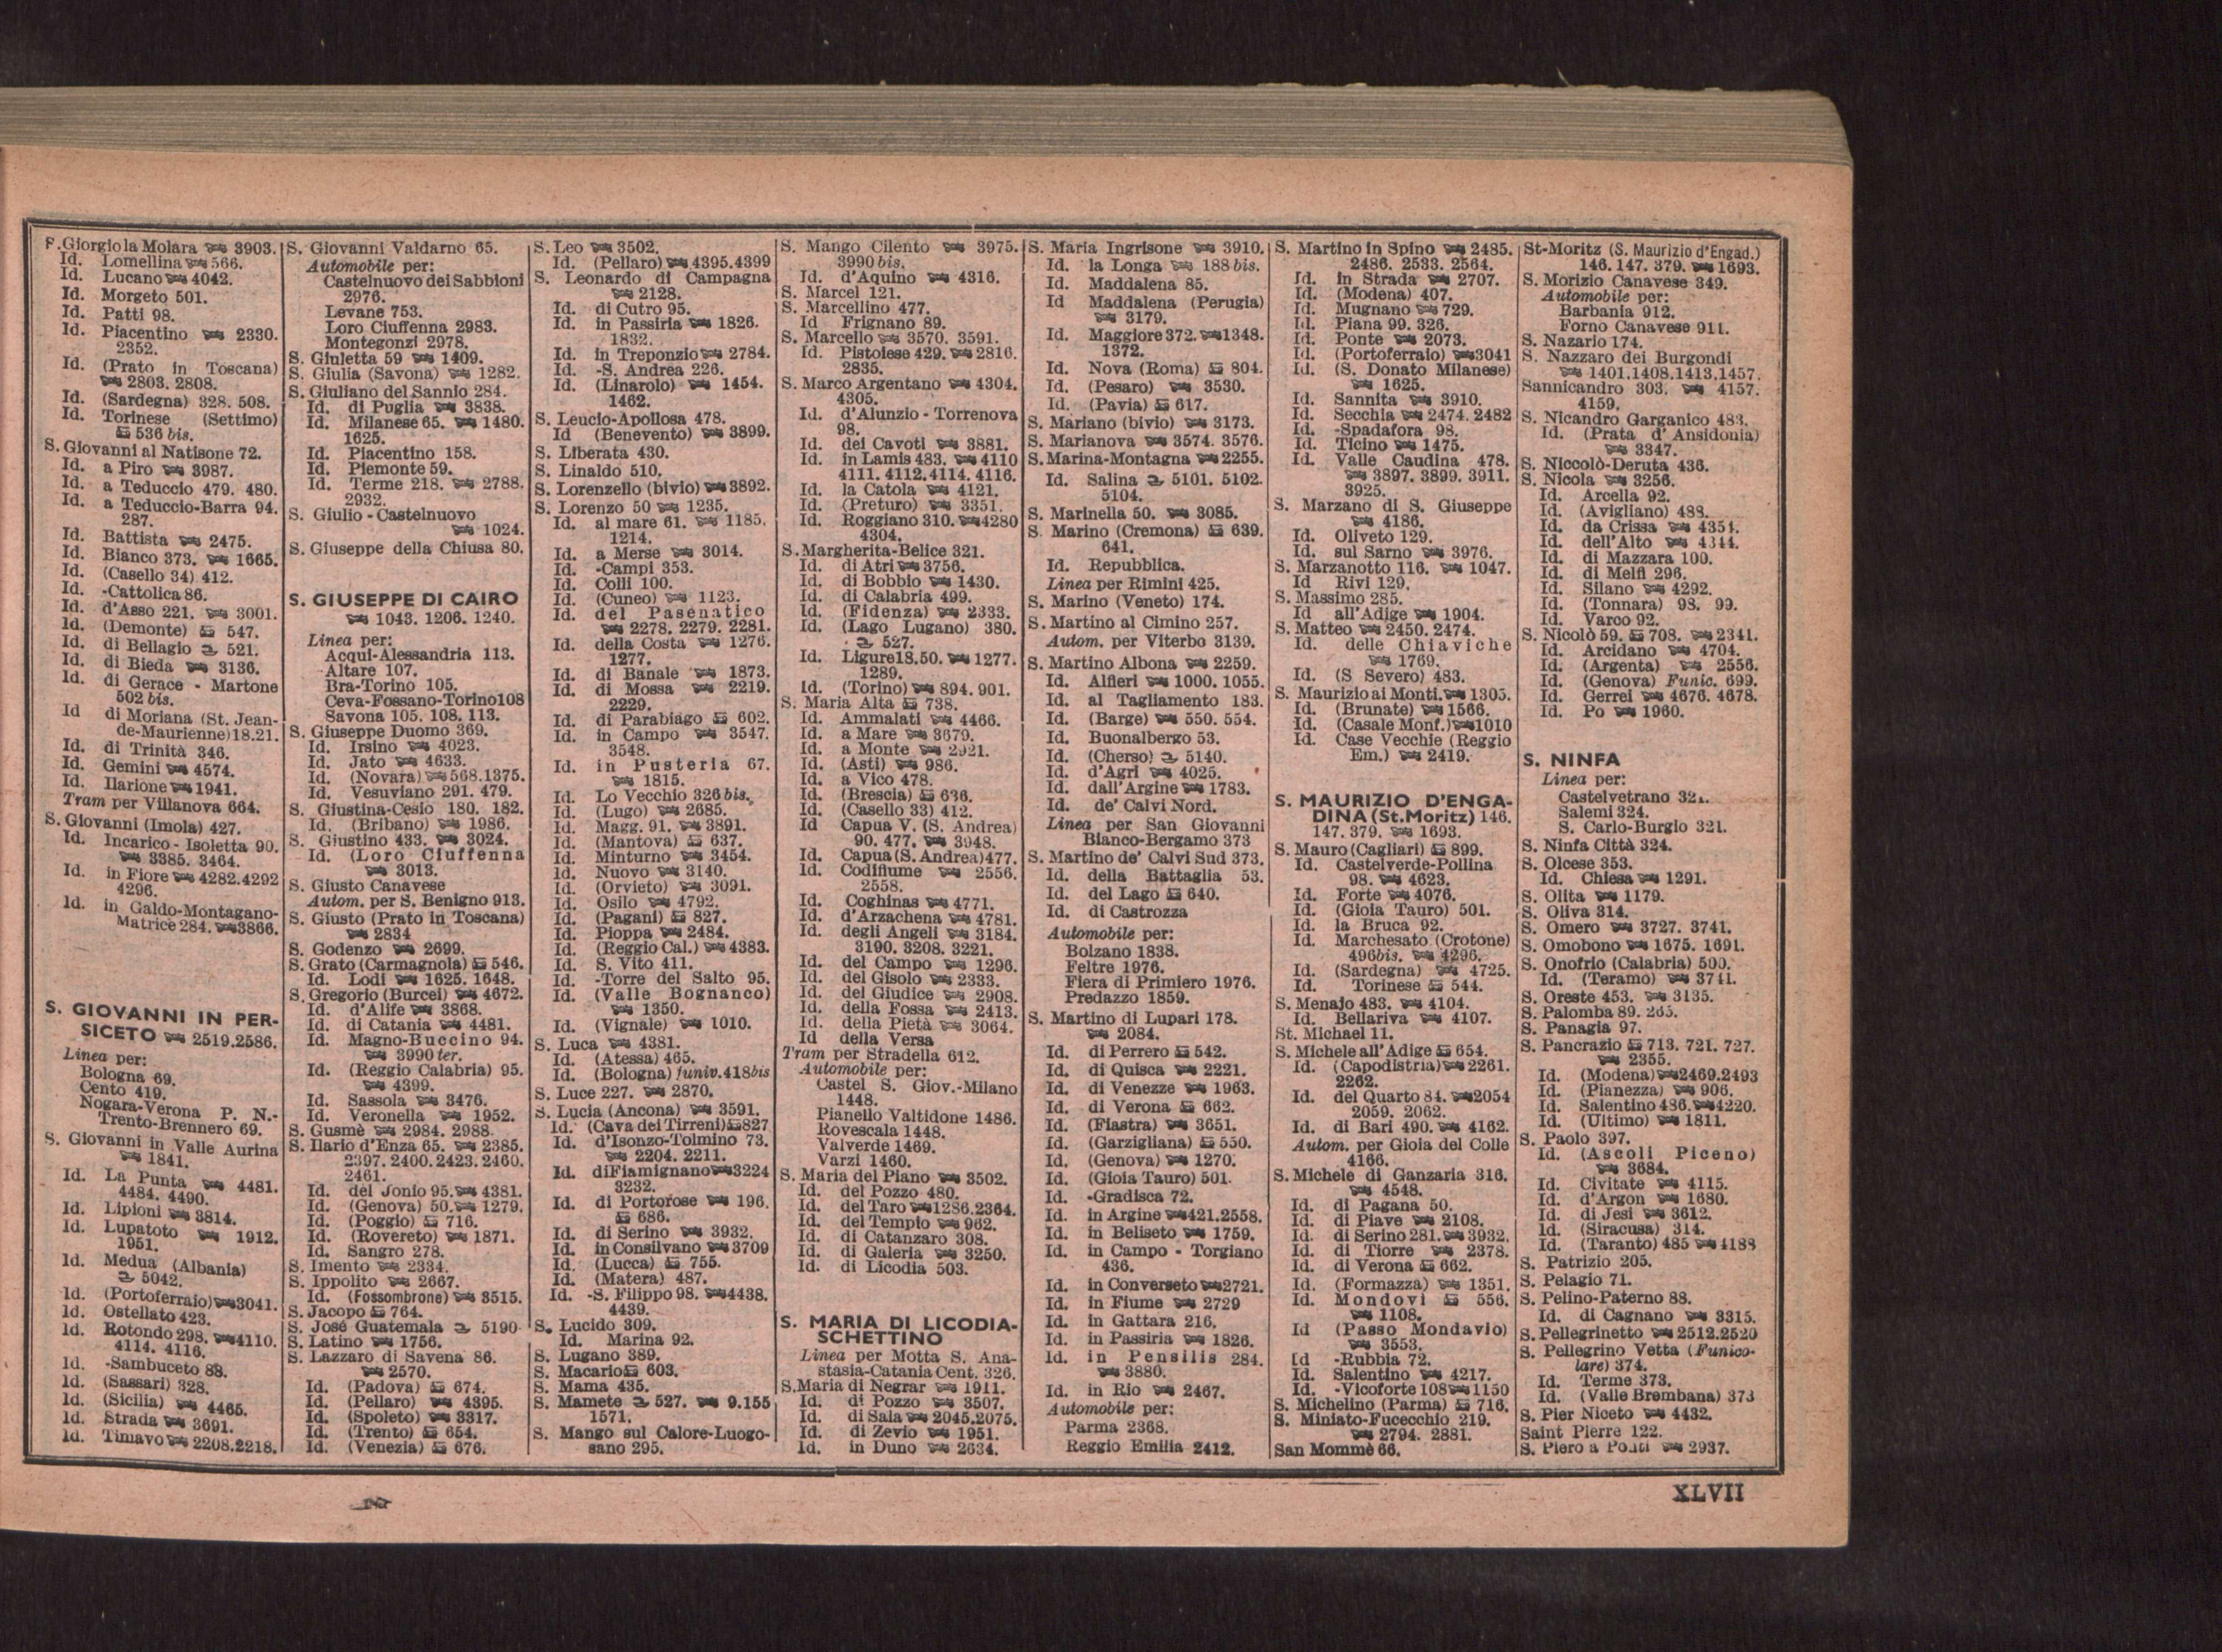 S.Giorgio la Molara 3903.
Id. Lomellina 566.
Id. Lucano 4042.
Id. Morgeto 501.
Id. Patti 98.
Id. Piacentino 2330.
2352.
Id. (Prato in Toscana)
2803. 2808.
Id. (Sardegna) 328. 508.
Id. Torinese (Settimo)
536 bis.
S. Giovanni al Natisone 72.
Id. a Piro 3987.
Id. a Teduccio 479. 480.
Id. a Teduccio-Barra 94.
287.
Id. Battista 2475.
Id. Bianco 373. 1665.
Id. (Casello 34) 412.
Id. -Cattolica 86.
Id. d'Asso 221. 3001.
Id. (Demonte) 547.
Id. di Bellagio 521.
Id. di Bieda 3136.
Id. di Gerace - Martone
502 bis.
Id di Moriana (St. Jean-
de-Maurienne) 18.21.
Id. di Trinità 346.
Id. Gemini 4574.
Id. Ilarione 1941.
Tram per Villanova 664.
S. Giovanni (Imola) 427.
Id. Incarico - Isoletta 90.
3385. 3464.
Id. in Fiore 4282.4292
4296.
Id. in Galdo-Montagano-
Matrice 284. 3866.
S. GIOVANNI IN PER-
SICETO 2519.2586.
Linea per:
Bologna 69.
Cento 419.
Nogara-Verona P. N.-
Trento-Brennero 69.
S. Giovanni in Valle Aurina
1841.
Id. La Punta 4481.
4484. 4490.
Id. Lipioni 3814.
Id. Lupatoto 1912.
1951.
Id. Medua (Albania)
5042.
Id. (Portoferraio) 3041.
Id. Ostellato 423.
Id. Rotondo 298. 4110.
4114. 4116.
Id. -Sambuceto 88.
Id. (Sassari) 328.
Id. (Sicilia) 4465.
Id. Strada 3691.
Id. Timavo 2208.2218.
S. Giovanni Valdarno 65.
Automobile per:
Castelnuovo dei Sabbioni
2976.
Levane 753.
Loro Ciuffenna 2983.
Montegonzi 2978.
S. Giuletta 59 1409.
S. Giulia (Savona) 1282.
S. Giuliano del Sannio 284.
Id. di Puglia 3838.
Id. Milanese 65. 1480.
1625.
Id. Piacentino 158.
Id. Piemonte 59.
Id. Terme 218. 2788.
2932.
S. Giulio - Castelnuovo
1024.
S. Giuseppe della Chiusa 80.
S. GIUSEPPE DI CAIRO
1043. 1206. 1240.
Linea per:
Acqui-Alessandria 113.
Altare 107.
Bra-Torino 105.
Ceva-Fossano-Torino108
Savona 105. 108. 113.
S. Giuseppe Duomo 369.
Id. Irsino 4023.
Id. Jato 4633.
Id. (Novara) 568.1375.
Id. Vesuviano 291. 479.
S. Giustina-Cesio 180. 182.
Id. (Bribano) 1986.
S. Giustino 433. 3024.
Id. (Loro Ciuffenna
3013.
S. Giusto Canavese
Autom. per S. Benigno 913.
S. Giusto (Prato in Toscana)
2834
S. Godenzo 2699.
S. Grato (Carmagnola) 546.
Id. Lodi 1625. 1648.
S. Gregorio (Burcei) 4672.
Id. d'Alife 3868.
Id. di Catania 4481.
Id. Magno-Buccino 94.
3990 ter.
Id. (Reggio Calabria) 95.
4399.
Id. Sassola 3476.
Id. Veronella 1952.
S. Gusmè 2984. 2988.
S. Ilario d'Enza 65. 2385.
2397. 2400. 2423. 2460.
2461.
Id. del Jonio 95. 4381.
Id. (Genova) 50. 1279.
Id. (Poggio) 716.
Id. (Rovereto) 1871.
Id. Sangro 278.
S. Imento 2334.
S. Ippolito 2667.
Id. (Fossombrone) 3515.
S. Jacopo 764.
S. José Guatemala 5190
S. Latino 1756.
S. Lazzaro di Savena 86.
2570.
Id. (Padova) 674.
Id. (Pellaro) 4395.
Id. (Spoleto) 3317.
Id. (Trento) 654.
Id. (Venezia) 676.
S. Leo 3502.
Id. (Pellaro) 4395.4399
S. Leonardo di Campagna
2128.
Id. di Cutro 95.
Id. in Passiria 1826.
1832.
Id. in Treponzio 2784.
Id. -S. Andrea 226.
Id. (Linarolo) 1454.
1462.
S. Leucio-Apollosa 478.
Id (Benevento) 3899.
S. Liberata 430.
S. Linaldo 510.
S. Lorenzello (bivio) 3892.
S. Lorenzo 50 1235.
Id. al mare 61. 1185.
1214.
Id. a Merse 3014.
Id. -Campi 353.
Id. Colli 100.
Id. (Cuneo) 1123.
Id. del Pasenatico
2278. 2279. 2281.
Id. della Costa 1276.
1277.
Id. di Banale 1873.
Id. di Mossa 2219.
2229.
Id. di Parabiago 602.
Id. in Campo 3547.
3548.
Id. in Pusteria 67.
1815.
Id. Lo Vecchio 326 bis.
Id. (Lugo) 2685.
Id. Magg. 91. 3891.
Id. (Mantova) 637.
Id. Minturno 3454.
Id. Nuovo 3140.
Id. (Orvieto) 3091.
Id. Osilo 4792.
Id. (Pagani) 827.
Id. Pioppa 2484.
Id. (Reggio Cal.) 4383.
Id. S. Vito 411.
Id. -Torre del Salto 95.
Id. (Valle Bognanco)
1350.
Id. (Vignale) 1010.
S. Luca 4381.
Id. (Atessa) 465.
Id. (Bologna) funiv. 418bis
S. Luce 227. 2870.
S. Lucia (Ancona) 3591.
Id. (Cava dei Tirreni) 827
Id. d'Isonzo-Tolmino 73.
2204. 2211.
Id. diFiamignano 3224
3232.
Id. di Portorose 196.
686.
Id. di Serino 3932.
Id. in Consilvano 3709
Id. (Lucca) 755.
Id. (Matera) 487.
Id. -S. Filippo 98. 4438.
4439.
S. Lucido 309.
Id. Marina 92.
S. Lugano 389.
S. Macario 603.
S. Mama 435.
S. Mamete 527. 9.155
1571.
S. Mango sul Calore-Luogo-
sano 295.
S. Mango Cilento 3975.
3990 bis.
Id. d'Aquino 4316.
S. Marcel 121.
S. Marcellino 477.
Id Frignano 89.
S. Marcello 3570. 3591.
Id. Pistoiese 429. 2816.
2835.
S. Marco Argentano 4304.
4305.
Id. d'Alunzio - Torrenova
98.
Id. dei Cavoti 3881.
Id. in Lamis 483. 4110
4111. 4112. 4114. 4116.
Id. la Catola 4121.
Id. (Preturo) 3351.
Id. Roggiano 310. 4280
4304.
S. Margherita-Belice 321.
Id. di Atri 3756.
Id. di Bobbio 1430.
Id. di Calabria 499.
Id. (Fidenza) 2333.
Id. (Lago Lugano) 380.
527.
Id. Ligure18.50. 1277.
1289.
Id. (Torino) 894. 901.
S. Maria Alta 738.
Id. Ammalati 4466.
Id. a Mare 3679.
Id. a Monte 2921.
Id. (Asti) 986.
Id. a Vico 478.
Id. (Brescia) 636.
Id. (Casello 33) 412.
Id Capua V. (S. Andrea)
90. 477. 3948.
Id. Capua (S. Andrea)477.
Id. Codifiume 2556.
2558.
Id. Coghinas 4771.
Id. d'Arzachena 4781.
Id. degli Angeli 3184.
3190. 3208. 3221.
Id. del Campo 1296.
Id. del Gisolo 2333.
Id. del Giudice 2908.
Id. della Fossa 2413.
Id. della Pietà 3064.
Id della Versa
Tram per Stradella 612.
Automobile per:
Castel S. Giov.-Milano
1448.
Pianello Valtidone 1486.
Rovescala 1448.
Valverde 1469.
Varzi 1460.
S. Maria del Piano 3502.
Id. del Pozzo 480.
Id. del Taro 1286.2364.
Id. del Tempio 962.
Id. di Catanzaro 308.
Id. di Galeria 3250.
Id. di Licodia 503.
S. MARIA DI LICODIA-
SCHETTINO
Linea per Motta S. Ana-
stasia-Catania Cent. 326.
S.Maria di Negrar 1911.
Id. di Pozzo 3507.
Id. di Sala 2045.2075.
Id. di Zevio 1951.
Id. in Duno 2634.
S. Maria Ingrisone 3910.
Id. la Longa 188 bis.
Id. Maddalena 85.
Id Maddalena (Perugia)
3179.
Id. Maggiore 372. 1348.
1372.
Id. Nova (Roma) 804.
Id. (Pesaro) 3530.
Id. (Pavia) 617.
S. Mariano (bivio) 3173.
S. Marianova 3574. 3576.
S. Marina-Montagna 2255.
Id. Salina 5101. 5102.
5104.
S. Marinella 50. 3085.
S. Marino (Cremona) 639.
641.
Id. Repubblica.
Linea per Rimini 425.
S. Marino (Veneto) 174.
S. Martino al Cimino 257.
Autom. per Viterbo 3139.
S. Martino Albona 2259.
Id. Alfieri 1000. 1055.
Id. al Tagliamento 183.
Id. (Barge) 550. 554.
Id. Buonalbergo 53.
Id. (Cherso) 5140.
Id. d'Agri 4025.
Id. dall'Argine 1783.
Id. de' Calvi Nord.
Linea per San Giovanni
Bianco-Bergamo 373
S. Martino de' Calvi Sud 373.
Id. della Battaglia 53.
Id. del Lago 640.
Id. di Castrozza
Automobile per:
Bolzano 1838.
Feltre 1976.
Fiera di Primiero 1976.
Predazzo 1859.
S. Martino di Lupari 178.
2084.
Id. di Perrero 542.
Id. di Quisca 2221.
Id. di Venezze 1963.
Id. di Verona 662.
Id. (Fiastra) 3651.
Id. (Garzigliana) 550.
Id. (Genova) 1270.
Id. (Gioia Tauro) 501.
Id. -Gradisca 72.
Id. in Argine 421.2558.
Id. in Beliseto 1759.
Id. in Campo - Torgiano
436.
Id. in Converseto 2721.
Id. in Fiume 2729
Id. in Gattara 216.
Id. in Passiria 1826.
Id. in Pensilis 284.
3880.
Id. in Rio 2467.
Automobile per:
Parma 2368.
Reggio Emilia 2412.
S. Martino in Spino 2485.
2486. 2533. 2564.
Id. in Strada 2707.
Id. (Modena) 407.
Id. Mugnano 729.
Id. Piana 99. 326.
Id. Ponte 2073.
Id. (Portoferraio) 3041
Id. (S. Donato Milanese)
1625.
Id. Sannita 3910.
Id. Secchia 2474. 2482
Id. -Spadafora 98.
Id. Ticino 1475.
Id. Valle Caudina 478.
3897. 3899. 3911.
3925.
S. Marzano di S. Giuseppe
4186.
Id. Oliveto 129.
Id. sul Sarno 3976.
S. Marzanotto 116. 1047.
Id Rivi 129.
S. Massimo 285.
Id all'Adige 1904.
S. Matteo 2450. 2474.
Id. delle Chiaviche
1769.
Id. (S Severo) 483.
S. Maurizio ai Monti. 1305.
Id. (Brunate) 1566.
Id. (Casale Monf.) 1010
Id. Case Vecchie (Reggio
Em.) 2419.
S. MAURIZIO D'ENGA-
DINA (St.Moritz) 146.
147. 379. 1693.
S. Mauro (Cagliari) 899.
Id. Castelverde-Pollina
98. 4623.
Id. Forte 4076.
Id. (Gioia Tauro) 501.
Id. la Bruca 92.
Id. Marchesato (Crotone)
496bis. 4296.
Id. (Sardegna) 4725.
Id. Torinese 544.
S. Menajo 483. 4104.
Id. Bellariva 4107.
St. Michael 11.
S. Michele all'Adige 654.
Id. (Capodistria) 2261.
2262.
Id. del Quarto 84. 2054
2059. 2062.
Id. di Bari 490. 4162.
Autom. per Gioia del Colle
4166.
S. Michele di Ganzaria 316.
4548.
Id. di Pagana 50.
Id. di Piave 2108.
Id. di Serino 281. 3932.
Id. di Tiorre 2378.
Id. di Verona 662.
Id. (Formazza) 1351.
Id. Mondovì 556.
1108.
Id (Passo Mondavio)
3553.
Id -Rubbia 72.
Id. Salentino 4217.
Id. -Vicoforte 108 1150
S. Michelino (Parma) 716.
S. Miniato-Fucecchio 219.
2794. 2881.
San Mommè 66.
St-Moritz (S. Maurizio d'Engad.)
146. 147. 379. 1693.
S. Morizio Canavese 349.
Automobile per:
Barbania 912.
Forno Canavese 911.
S. Nazario 174.
S. Nazzaro dei Burgondi
1401.1408.1413.1457.
Sannicandro 303. 4157.
4159.
S. Nicandro Garganico 483.
Id. (Prata d'Ansidonia)
3347.
S. Niccolò-Deruta 436.
S. Nicola 3256.
Id. Arcella 92.
Id. (Avigliano) 488.
Id. da Crissa 4351.
Id. dell'Alto 4344.
Id. di Mazzara 100.
Id. di Melfi 296.
Id. Silano 4292.
Id. (Tonnara) 98. 99.
Id. Varco 92.
S. Nicolò 59. 708. 2341.
Id. Arcidano 4704.
Id. (Argenta) 2556.
Id. (Genova) Funic. 699.
Id. Gerrei 4676. 4678.
Id. Po 1960.
S. NINFA
Linea per:
Castelvetrano 321.
Salemi 324.
S. Carlo-Burgio 321.
S. Ninfa Città 324.
S. Olcese 353.
Id. Chiesa 1291.
S. Olita 1179.
S. Oliva 314.
S. Omero 3727. 3741.
S. Omobono 1675. 1691.
S. Onofrio (Calabria) 500.
Id. (Teramo) 3741.
S. Oreste 453. 3135.
S. Palomba 89. 265.
S. Panagia 97.
S. Pancrazio 713. 721. 727.
2355.
Id. (Modena) 2469.2493
Id. (Pianezza) 906.
Id. Salentino 486. 4220.
Id. (Ultimo) 1811.
S. Paolo 397.
Id. (Ascoli Piceno)
3684.
Id. Civitate 4115.
Id. d'Argon 1680.
Id. di Jesi 3612.
Id. (Siracusa) 314.
Id. (Taranto) 485 4188
S. Patrizio 205.
S. Pelagio 71.
S. Pelino-Paterno 88.
Id. di Cagnano 3315.
S. Pellegrinetto 2512.2520
S. Pellegrino Vetta (Funico-
lare) 374.
Id. Terme 373.
Id. (Valle Brembana) 373
S. Pier Niceto 4432.
Saint Pierre 122.
S. Piero a Ponti 2937.
XLVII